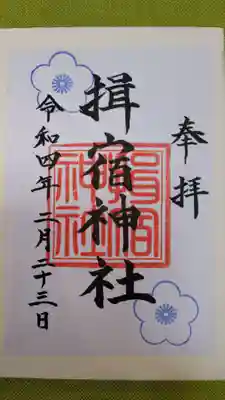 奉拝
揖宿神社
令和四年 二月二十三日